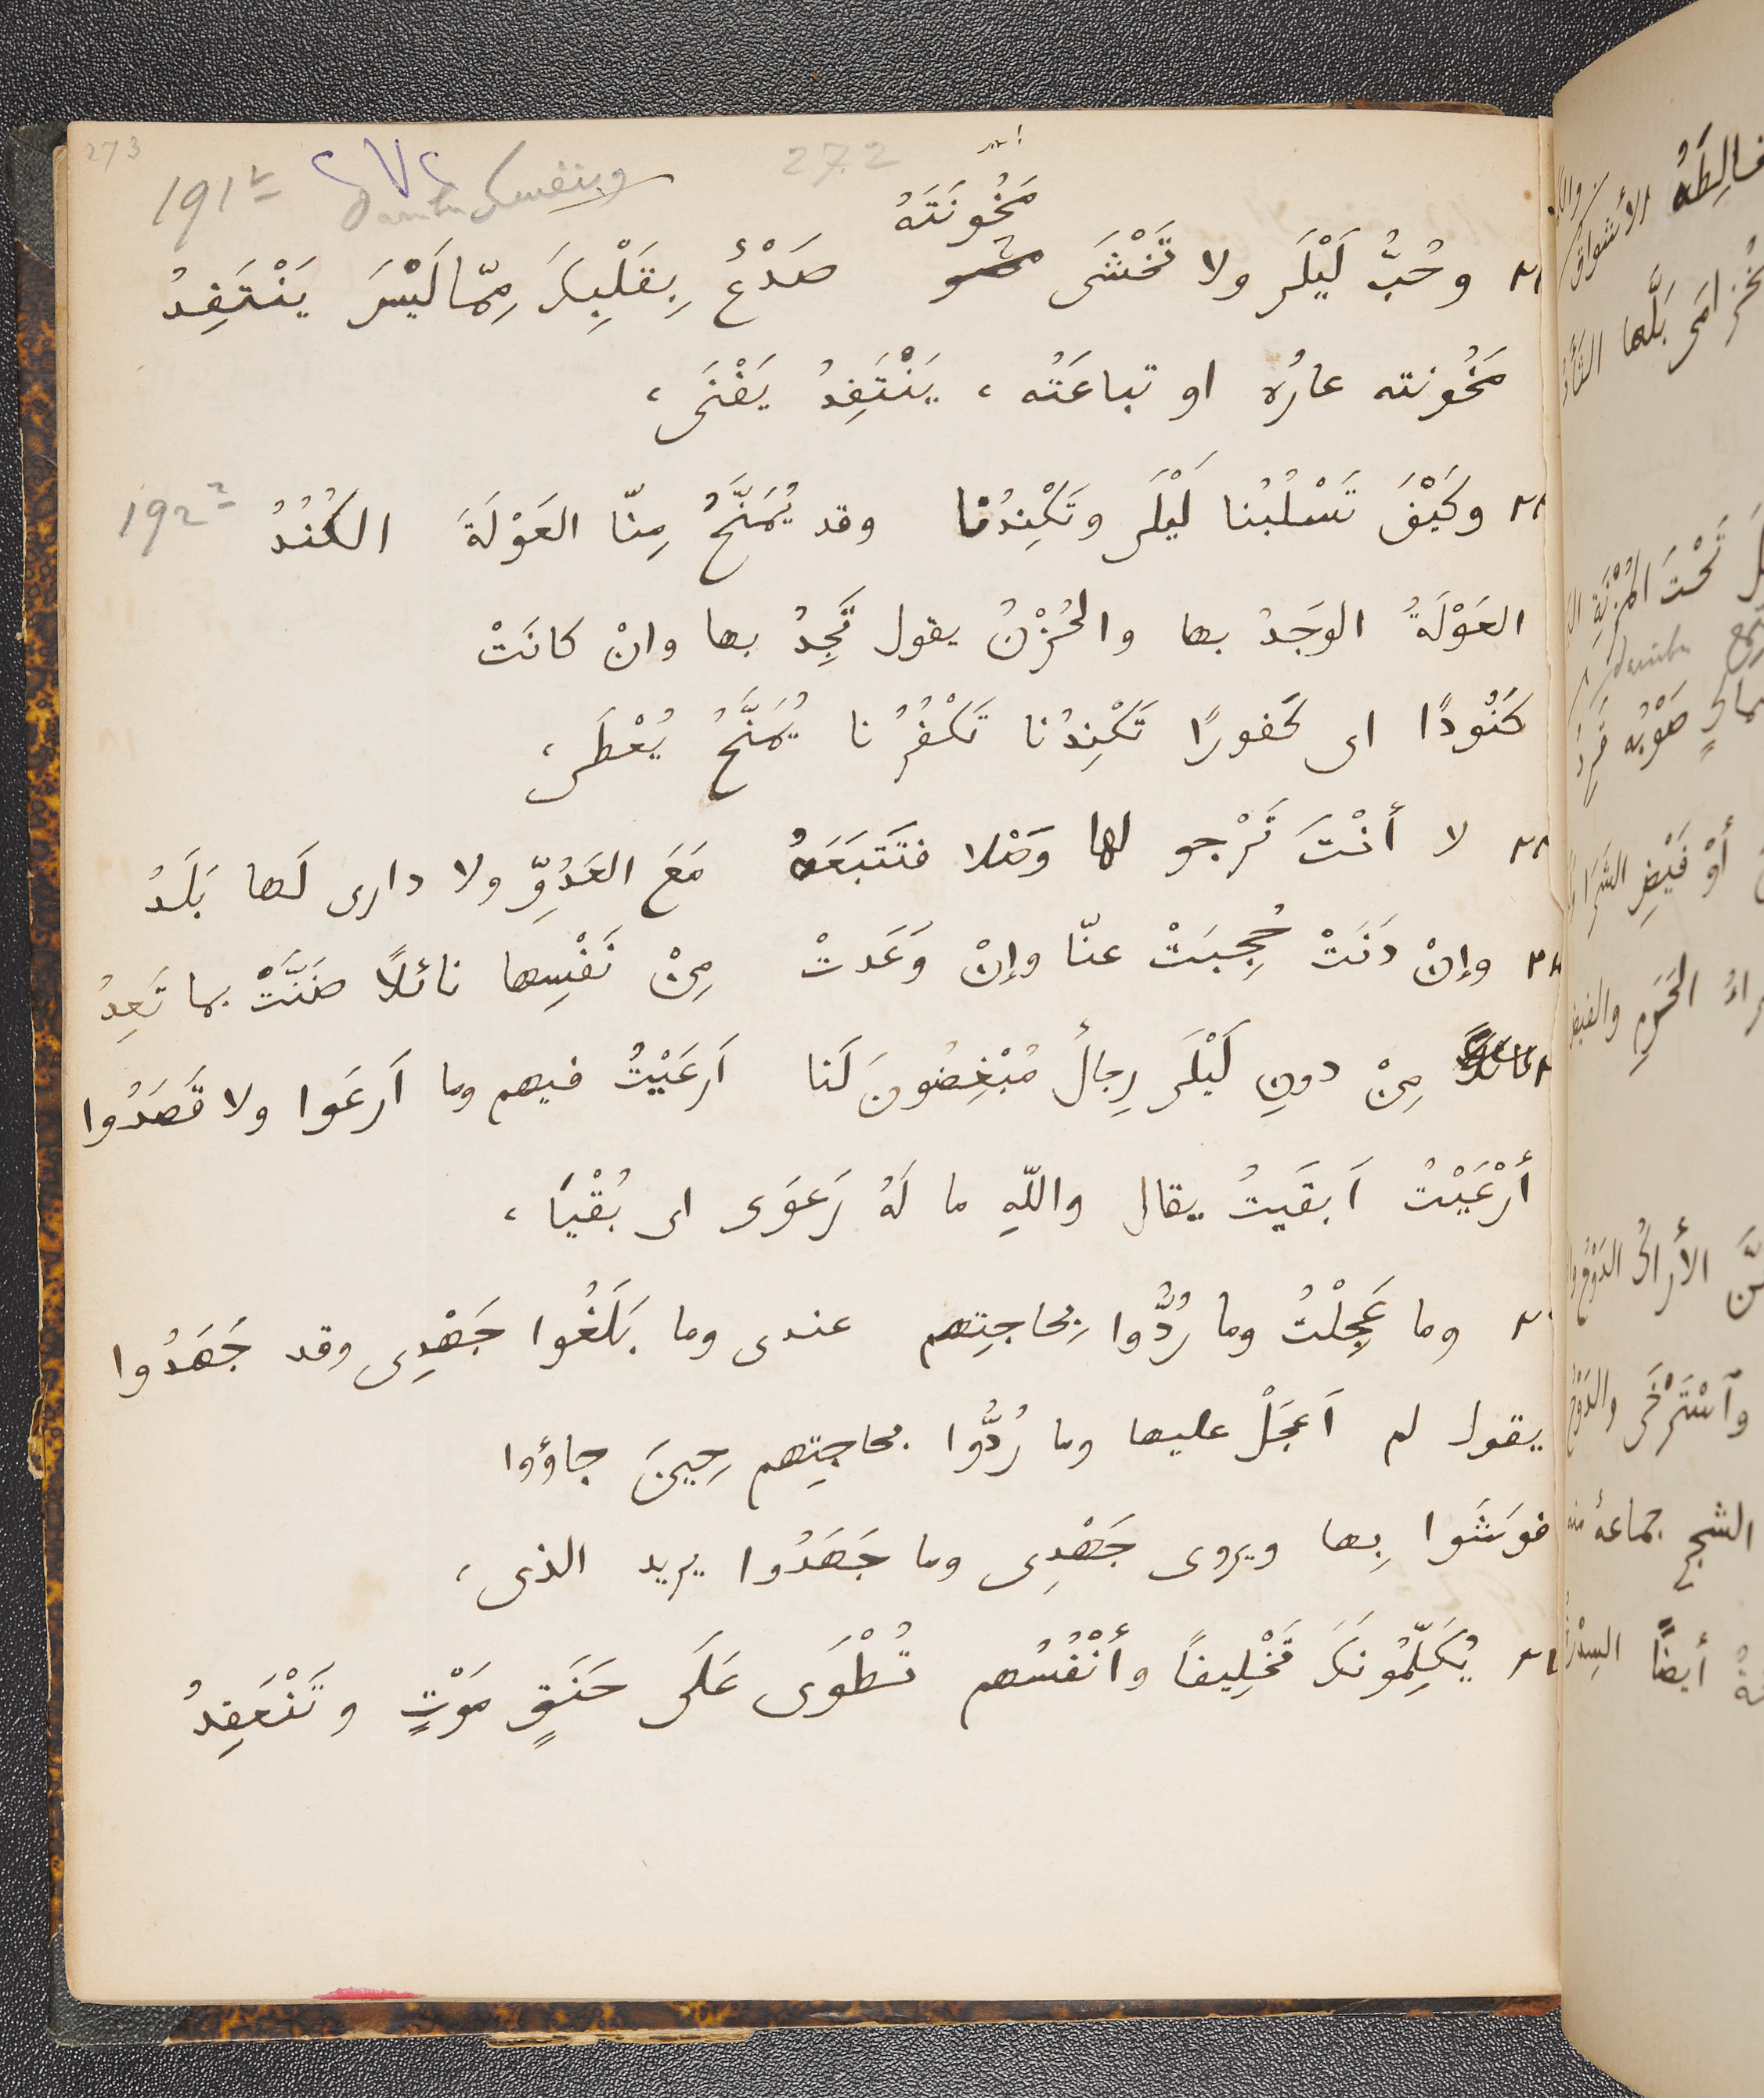 273
191
272
٢٧٢
مَخُونَتَهُ
وحُبُّ لَيْلَى ولا تَخْشَى صَدْعٌ بِقَلْبِكَ مِمّا لَيْسَ يَنْتَفِدُ
مَخُونته عارُه او تباعَتُه ، يَنْتَفِدُ يَفْنَى ،
192
وكَيْفَ تَسْلُبُنا لَيْلَى وتَكْنِدُنا وقد يُمَنَّحُ مِنّا العَوْلَةَ الكُنُدُ
العَوْلَةُ الوَجَدُ بها والحُزْنُ يقول تَجِدُ بها وانْ كانَتْ
كَنُودًا اى كَفورًا تَكْنِدُنا تَكْفُرُنا يُمَنَّحُ يُعْطَى ،
لا أنْتَ تَرْجو لها وَصْلا فتَتبَعَهُ مَعَ العَدُوِّ ولا دارى لَها بَلَدُ
وإنْ دَنَتْ حُجِبَتْ عنّا وإنْ وَعَدتْ مِنْ نَفْسِها نائلاً ضَنَّتْ بما تَعِدُ
مِنْ دونِ لَيْلَى رِجالٌ مُبْغِضُونَ لَنا اَرعَيْتُ فيهم وما اَرعَوا ولا قَصَدُوا
أرْعَيْتُ اَبقَيتُ يقال واللّهِ ما لَهُ رَعوَى اى بُقْيَا ،
وما عَجِلْتُ وما رُدُّوا بِحاجتِهم عندى وما بَلَغُوا جَهْدِى وقد جَهَدُوا
يقول لم اَعجَلْ عليها وما رُدُّوا بحاجتِهم حِينَ جاؤوا
فوَشَوا بِها ويروى جَهْدِى وما جَهَدُوا يريد الذى ،
يُكَلِّمُونَكَ تَخْلِيفاً وأنْفُسُهم تُطْوَى عَلَى حَنَقٍ مَوْتٍ وتَنْعَقِدُ